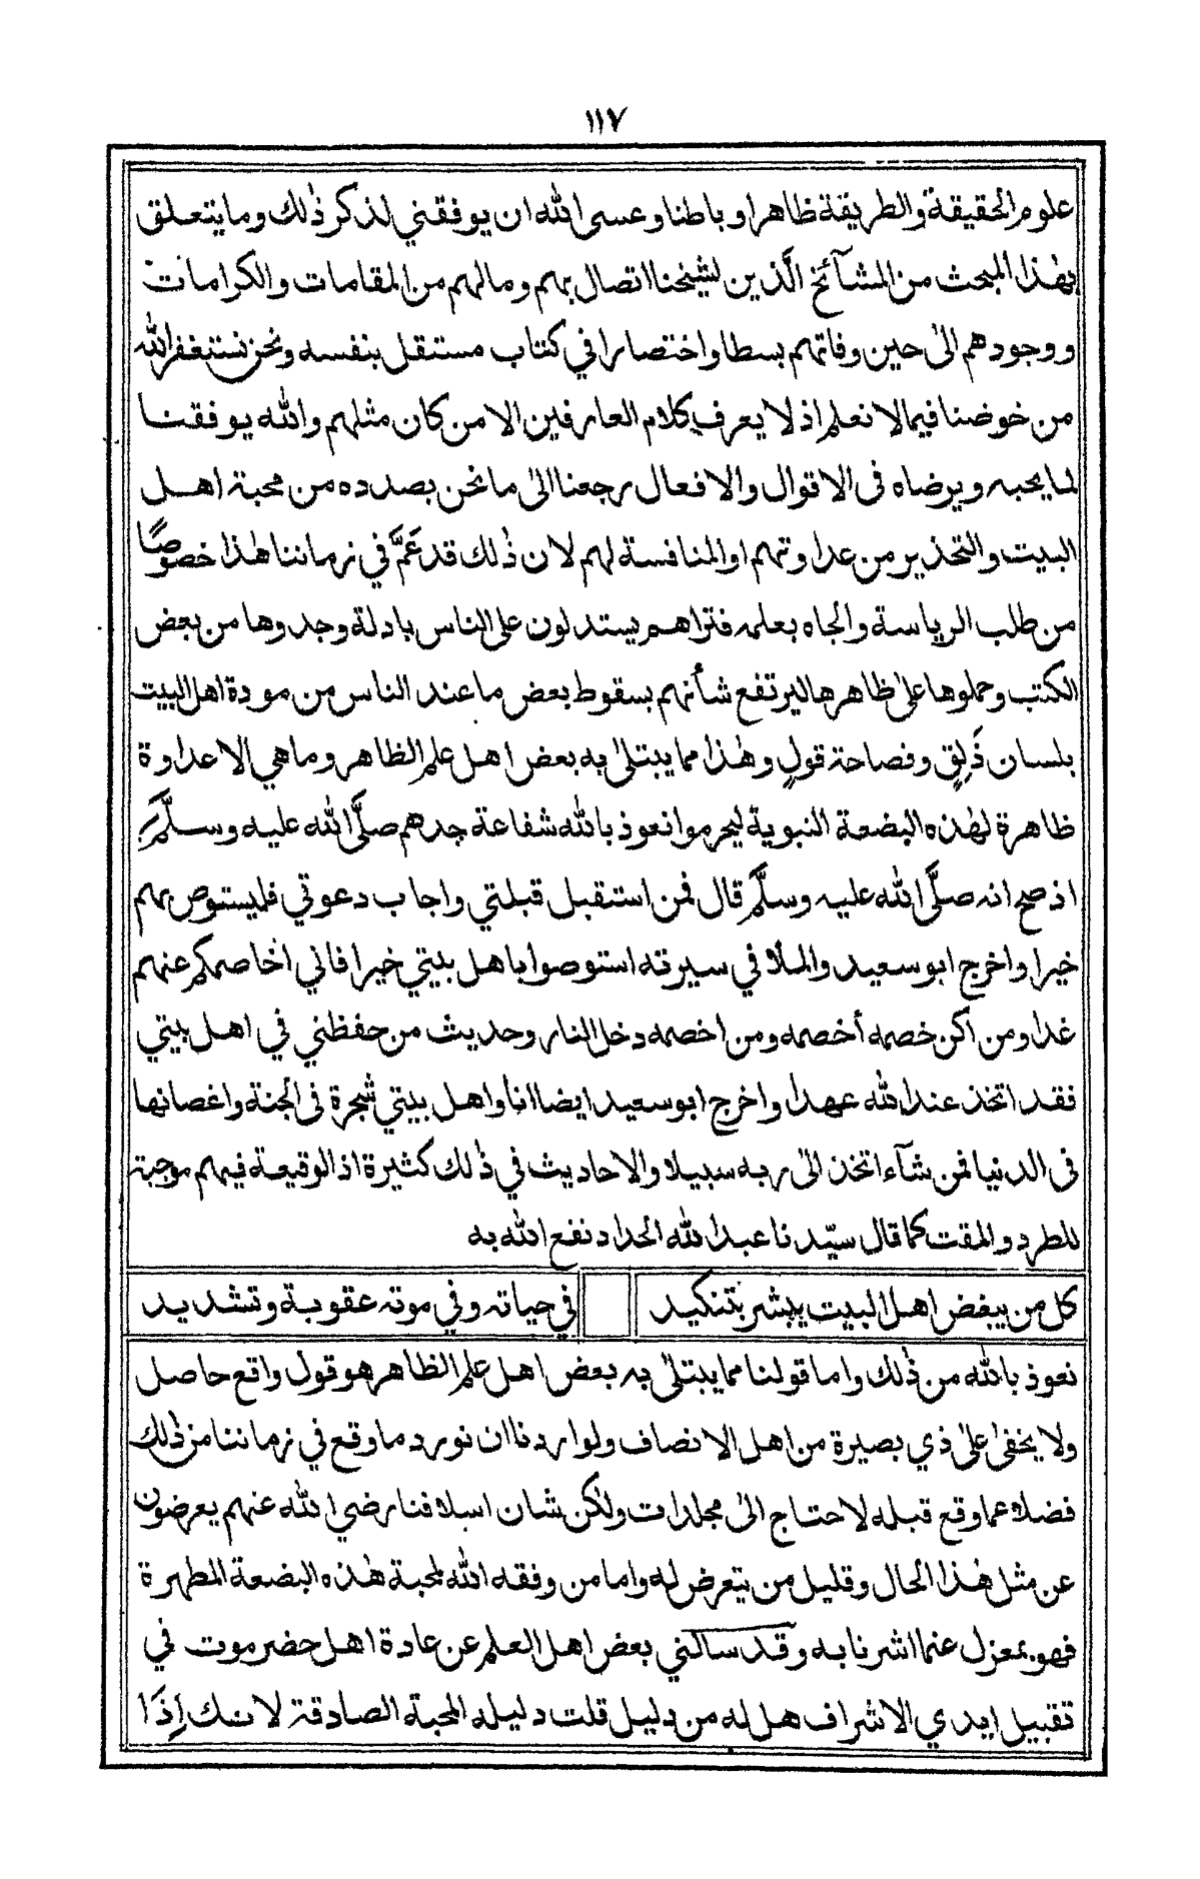 ١١٧
علوم الحقيقة والطريقة ظاهرا وباطنا وعسى الله ان يوفقني لذكر ذٰلك وما يتعلق
بهٰذا المبحث من المشآئخ الَّذين لشيخنا اتصال بهم وما لهم من المقامات والكرامات
ووجودهم الىٰ حين وفاتهم بسطا واختصارا في كتاب مستقل بنفسه ونحن نستغفر الله
من خوضنا فيما لا نعلم اذ لا يعرف كلام العارفين الا من كان مثلهم والله يوفقنا
لما يحبه ويرضاه فى الاقوال والافعال رجعنا الىٰ ما نحن بصدده من محبة اهل
البيت والتحذير من عداوتهم او المنافسة لهم لان ذٰلك قد عَمَّ في زماننا هٰذا خصوصًا
من طلب الرياسة والجاه بعلمه فتراهم يستدلون على الناس بادلة وجدوها من بعض
الكتب وحملوها علىٰ ظاهرها ليرتفع شأنهم بسقوط بعض ما عند الناس من مودة اهل البيت
بلسان ذَلِقٍ وفصاحة قولٍ وهٰذا مما يبتلىٰ به بعض اهل علم الظاهر وما هي الا عداوة
ظاهرة لهٰذه البضعة النبوية ليحرموا نعوذ بالله شفاعة جدهم صلَّى الله عليه وسلَّم
اذ صح انه صلَّى الله عليه وسلَّم قال فمن استقبل قبلتي واجاب دعوتي فليستوص بهم
خيرا واخرج ابو سعيد والملا في سيرته استوصوا باهل بيتي خيرا فاني اخاصمكم عنهم
غدا ومن اكن خصمه أخصمه ومن اخصمه دخل النار وحديث من حفظني في اهل بيتي
فقد اتخذ عند الله عهدا واخرج ابو سعيد ايضا انا واهل بيتي شجرة فى الجنة واغصانها
فى الدنيا فمن شآء اتخذ الىٰ ربه سبيلا والاحاديث في ذٰلك كثيرة اذ الوقيعة فيهم موجبة
للطرد والمقت كما قال سيّدنا عبد الله الحداد نفع الله به
كل من يبغض اهل البيت يبشر بتنكيد في حياته وفي موته عقوبة وتشديد
نعوذ بالله من ذٰلك واما قولنا مما يبتلىٰ به بعض اهل علم الظاهر هو قول واقع حاصل
ولا يخفىٰ علىٰ ذي بصيرة من اهل الانصاف ولو اردنا ان نورد ما وقع في زماننا من ذٰلك
فضلا عما وقع قبله لاحتاج الىٰ مجلدات ولٰكن شان اسلافنا رضي الله عنهم يعرضون
عن مثل هٰذا الحال وقليل من يتعرض له واما من وفقه الله لمحبة هٰذه البضعة المطهرة
فهو بمعزل عنما اشرنا به وقد سالني بعض اهل العلم عن عادة اهل حضرموت في
تقبيل ايدي الاشراف هل له من دليل قلت دليله المحبة الصادقة لانك إذَا